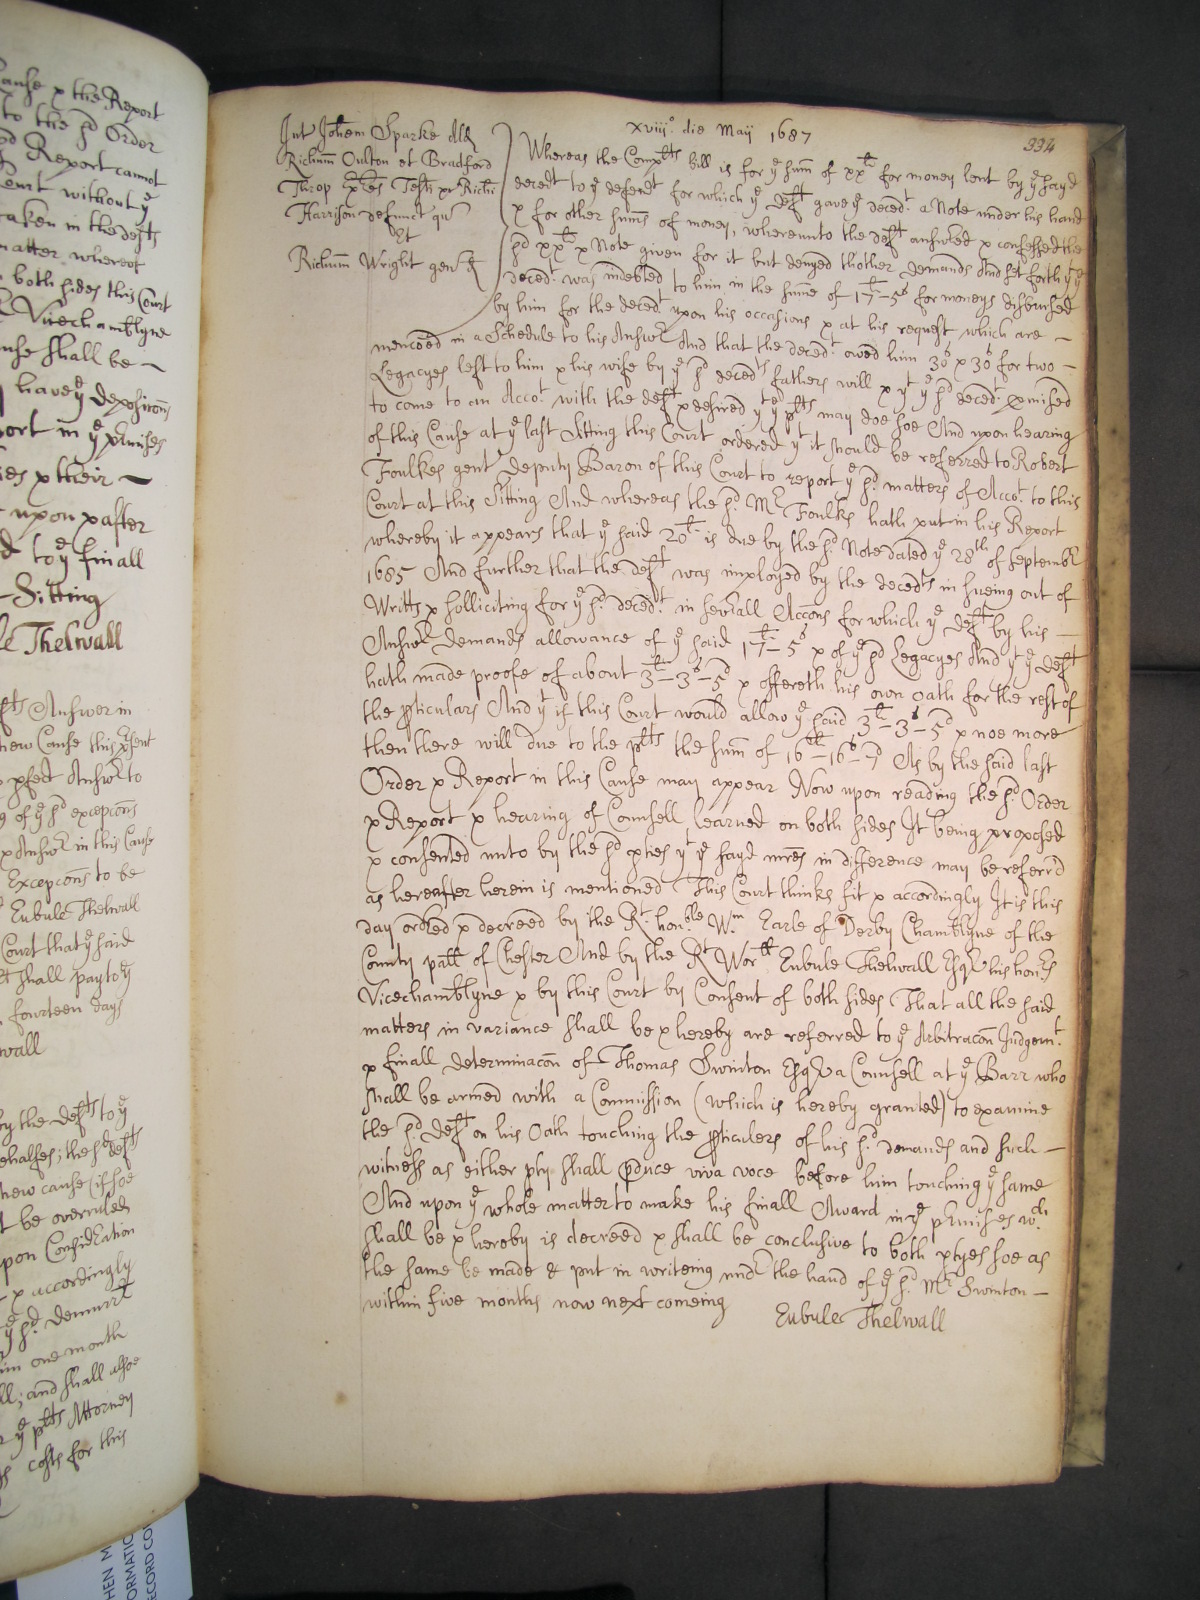 ause x the Report
to the sd Order
sd Report cannot
Court without ye
taken in the defts
matter whereof
both sides this Court
Vicechamblyne
ause shall be —
have ye deposicons
port in ye pmises
ies x their —
upon x after
d to ye finall
Sitting
le Thelwall
fts Answer in
new Cause this psent
pfect Answr to
g of ye sd excepcons
x Answr in this Cause
Excepcons to be
Eubule Thelwall
Court that ye said
shall pay to ye
fourteen days
wall
by the defts to ye
behalfes; the sd defts
new cause (if soe
t be overruled
pon Considracon
x accordingly
ye sd demurr
im one month
ll; and shall alsoe
r ye plts Attorney
costs for this
334
xviii o die Maij 1687
Int Johem Sparke All
Richum Oulton et Bradford
Throp Exres Testi xx Richi
Harrison defunct qu
et
Richum Wright gen d
Whereas the Complts bill is for ye sum of xx l for money lent by ye sayd
decedt to ye defendt for which ye deft gave ye decedt a Note under his hand
x for other sums of money, whereunto the deft answred x confessed the
sd xx l x Note given for it but denyed thother demands And set forth yt ye
decedt was indebted to him in the sume of 17 l - 5 s for moneys disbursed
by him for the decedt upon his occasions x at his request which are —
menconed in a Schedule to his Answr And that the decedt owed him 30 s x 30 s for two —
Legacyes left to him x his wife by ye sd decedts fathers will x yt ye sd decedt pmised
to come to an Accot with the deft x desired yt ye plts may doe soe And upon hearing
of this Cause at ye last Sitting this Court ordered yt it should be referred to Robert
Foulkes gent deputy Baron of this Court to report ye sd matters of Accot to this
Court at this Sitting And whereas the sd Mr Foulks hath put in his Report
whereby it appears that ye said 20 l is due by the sd Note dated ye 28th of Septembr
1685 And further that the deft was imployed by the decedts in sueing out of
Writts x solliciting for ye sd decedt in sevrall Accons for which ye deft by his —
Answr demands allowance of ye said 17 l - 5 s x of ye sd Legacyes And yt ye deft
hath made proofe of about 3 l - 3 s - 5 d x offereth his own oath for the rest of
the pticulars And yt if this Court would allow ye said 3 l - 3 s - 5 d x noe more
then there will due to the plts the sum of 16 l - 16 s - 7 d As by the said last
Order x Report in this Cause may appear Now upon reading the sd Order
x Report x hearing of Counsell learned on both sides It being proposed
x consented unto by the sd pties yt ye sayd mres in difference may be referr'd
as hereafter herein is mentioned This Court thinks fit x accordingly It is this
day ordred x decreed by the Rt honble Wm Earle of Derby Chamblyne of the
County patt of Chester And by the Rt Worll Eubule Thelwall Esqr his honrs
Vicechamblyne x by this Court by Consent of both sides That all the said
matters in variance shall be x hereby are referred to ye Arbitracon Judgemt
x finall determinacon of Thomas Swinton Esqr a Counsell at ye Barr who
shall be armed with a Commission (which is hereby granted) to examine
the sd deft on his Oath touching the pticulers of his sd demands and such —
witness as either pty shall pduce viva voce before him touching ye same
And upon ye whole matter to make his finall Award in ye pmises wch
shall be x hereby is decreed x shall be conclusive to both ptyes soe as
the same be made & put in writeing undr the hand of ye sd Mr Swinton —
within five months now next comeing
Eubule Thelwall